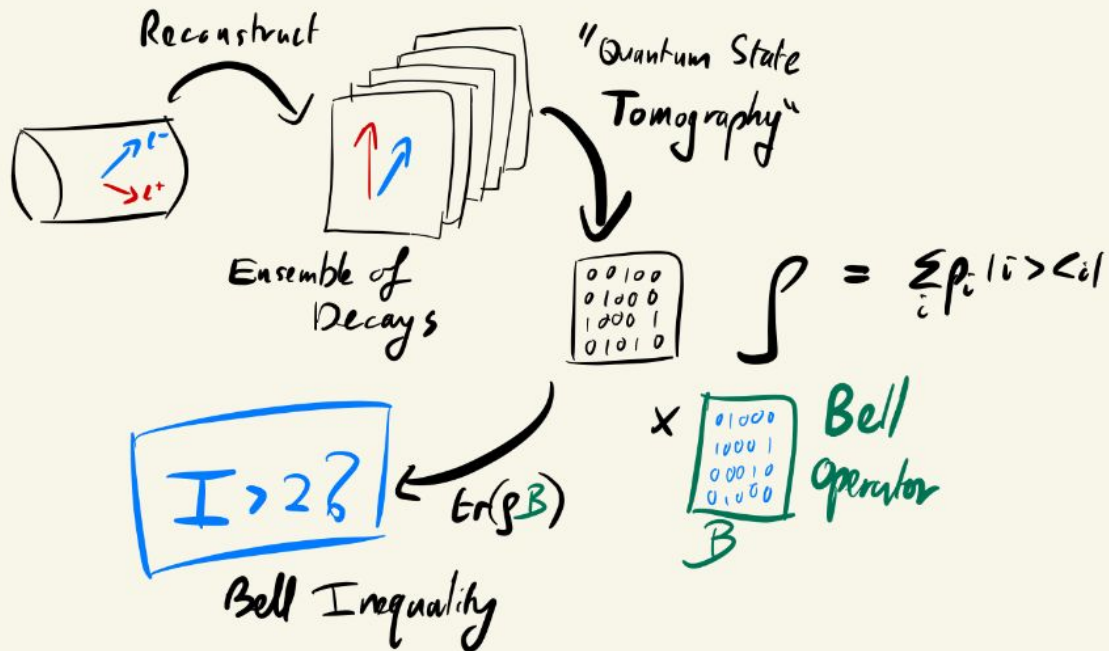 Reconstruct
"Quantum State
Tomography"
e-
e+
Ensemble of
Decays
00100
01000
10001
01010
ρ = Σ_i p_i |i><i|
x
01000
10001
00010
01000
Bell
Operator
B
tr(ρB)
I > 2?
Bell Inequality